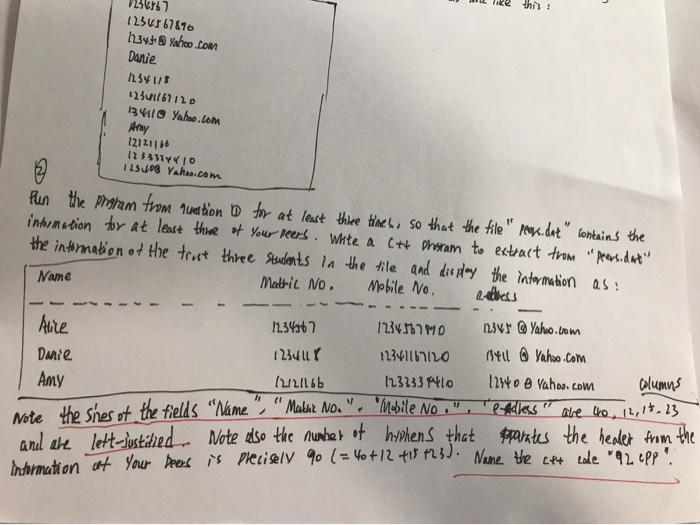 like this :
1234567
1234567890
12345@ Yahoo.com
Danie
1234118
12341167120
13411@ Yahoo.com
Amy
12121166
1233334410
123408 Yahoo.com
②
Run the program from question ① for at least three times, so that the file "peers.dat" contains the
information for at least three of your peers. Write a C++ program to extract from "peers.dat"
the information of the first three students in the file and display the information as :
Name Matric No. Mobile No. e-address
Alice 1234567 1234567890 12345 @ Yahoo.com
Danie 1234118 12341167120 13411 @ Yahoo.com
Amy 12121166 1232334410 12340@ Yahoo.com columns
Note the sizes of the fields "Name", "Matric No.", "Mobile No.", "e-address" are 40, 12, 15, 23
and are left-justified. Note also the number of hyphens that separates the header from the
information of your peers is precisely 90 (= 40+12 +15 +23). Name the C++ code "q2 cpp".